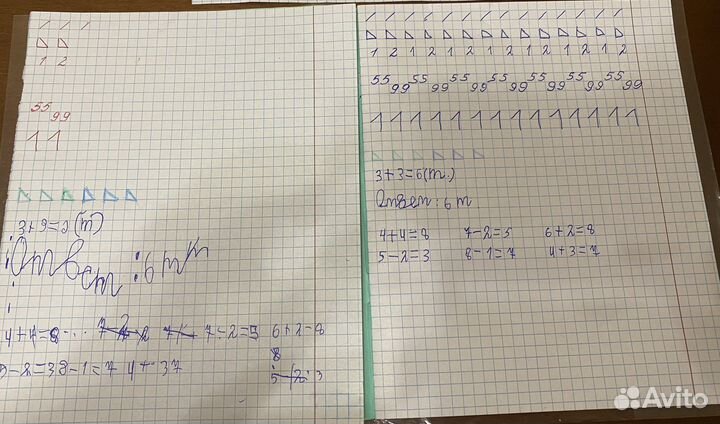 1 2
55
99
11
3+9=2(м)
Ответ:6 м
4+4=8 7-2=5 6+2=8
8
5-2=3 8-1=7 4+37
5-2:3
1 2 1 2 1 2 1 2 1 2 1 2 1 2
55 99 55 99 55 99 55 99 55 99 55 99 55 99
1 1 1 1 1 1 1 1 1 1 1 1 1 1
3+3=6(м.)
Ответ: 6 м.
4+4=8 7-2=5 6+2=8
5-2=3 8-1=7 4+3=7
Avito